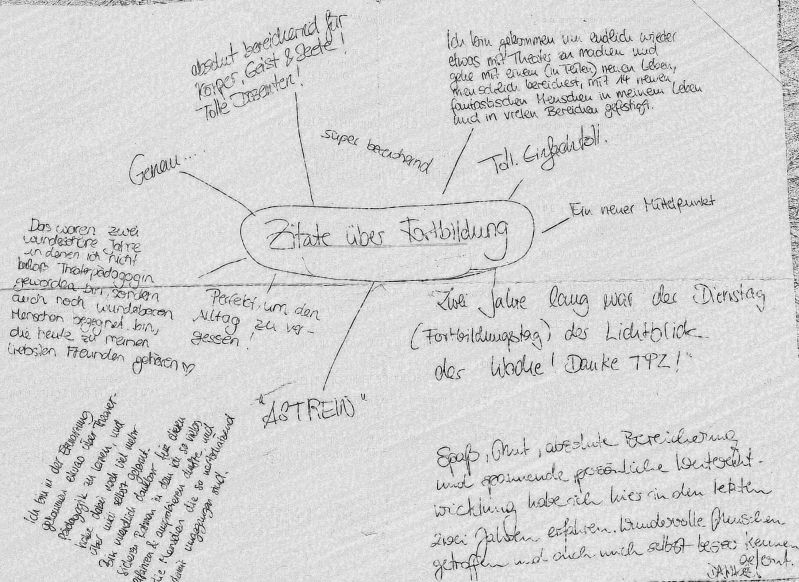 absolut bereichernd für
Körper, Geist & Seele!
Tolle Dozenten!
Ich bin gekommen um endlich wieder
etwas mit Theater zu machen und
gehe mit einem (in Teilen) neuen Leben,
menschlich bereichert, mit 14 neuen,
fantastischen Menschen in meinem Leben
und in vielen Bereichen gefestigt.
super bereichernd
Toll. Einfach toll.
Genau....
Ein neuer Mittelpunkt
Zitate über Fortbildung
Das waren zwei
wunderschöne Jahre
in denen ich nicht
bloß Theaterpädagogin
geworden bin, sondern
auch noch wunderbaren
Menschen begegnet bin,
die heute zu meinen
liebsten Freunden gehören ♡
Perfekt, um den
Alltag zu ver-
gessen!
Zwei Jahre lang war der Dienstag
(Fortbildungstag) der Lichtblick
der Woche! Danke TPZ!"
"ASTREIN"
Ich bin in der Erwartung
gekommen etwas über Theater-
Pädagogik zu lernen, und
habe dabei noch viel mehr
über mich selbst gelernt.
Bin unendlich dankbar für diesen
sicheren Rahmen in dem ich so vieles
erfahren & ausprobieren durfte und
die Menschen die so
damit umgegangen sind.
Spaß, Mut, absolute Bereicherung
und spannende persönliche Weiterent-
wicklung habe ich hier in den letzten
zwei Jahren erfahren. Wundervolle Menschen
getroffen und auch mich selbst besser kennen
gelernt.
DANKE!